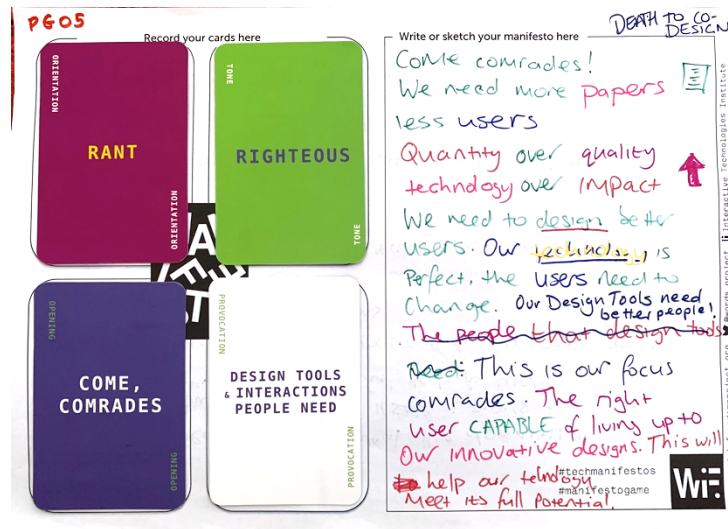 PG05
Record your cards here
ORIENTATION
RANT
ORIENTATION
TONE
RIGHTEOUS
TONE
OPENING
COME,
COMRADES
OPENING
PROVOCATION
DESIGN TOOLS
& INTERACTIONS
PEOPLE NEED
PROVOCATION
Write or sketch your manifesto here
DEATH TO CO-
DESIGN
Come comrades!
We need more papers
less users
Quantity over quality
technology over IMPact
We need to design better
users. Our technology is
Perfect, the users need to
Change. Our Design Tools need
better people!
The people that design tools
Need:
This is our focus
comrades. The right
user CAPABLE of living up to
Our innovative designs. This will
help our tehnology
Meet its full potential.
#techmanifestos
#manifestogame
WiF
Interactive Technologies Institute